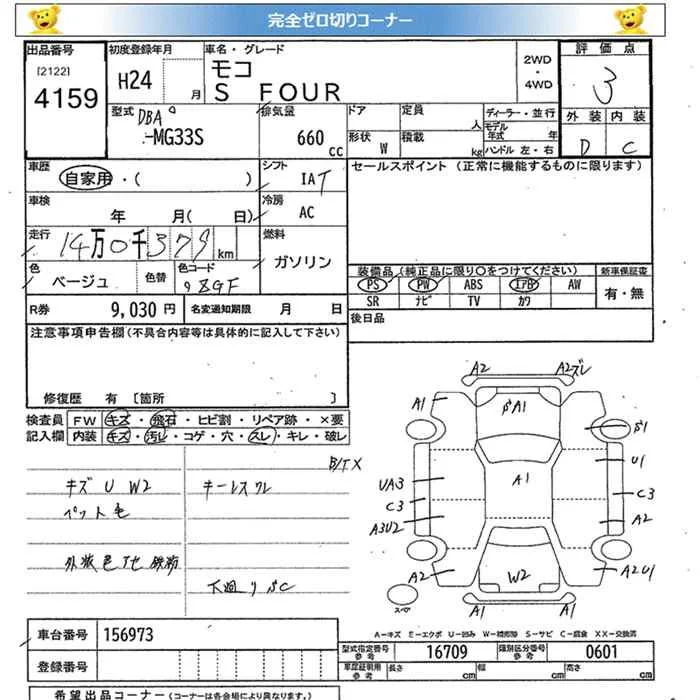 完全ゼロ切りコーナー
出品番号
[2122]
4159
初度登録年月
H24
月
車名・グレード
モコ
S FOUR
2WD
・
4WD
評価点
3
外装 内装
D C
型式 DBA
-MG33S
排気量
660
cc
ドア
定員
人
ディーラー・並行
モデル年式 年
形状 W
積載 kg
ハンドル 左・右
車歴
自家用・( )
シフト
IAT
セールスポイント (正常に機能するものに限ります)
車検
年 月( 日)
冷房
AC
走行
14万0千379km
燃料
ガソリン
色
ベージュ
色替
色コード
装備品 (純正品に限り○をつけてください)
新車保証書
PS PW ABS エアB AW
SR ナビ TV カワ
有・無
R券 9,030 円
名変通知期限 月 日
後日品
注意事項申告欄 (不具合内容等は具体的に記入して下さい)
修復歴 有 〔箇所 〕
検査員 FW キズ・飛石・ヒビ割・リペア跡・×要
記入欄 内装 キズ・汚レ・コゲ・穴・スレ・キレ・破レ
B/TX
キズ U W2
キーレスワレ
ペット毛
下廻りサC
A2 A2ズレ
A1
A1
U1
A1
UA3
C3
C3
A3U2
A2
A2
W2
A2U1
スペア
A1 A1
A-キズ E-エクボ U-凹み W-補修跡 S-サビ C-腐食 XX-交換済
車台番号 156973
型式指定番号 参考 16709
類別区分番号 参考 0601
登録番号
車庫証明用 参考 長さ cm 幅 cm 高さ cm
希望出品コーナー (コーナーは各会場により異なります